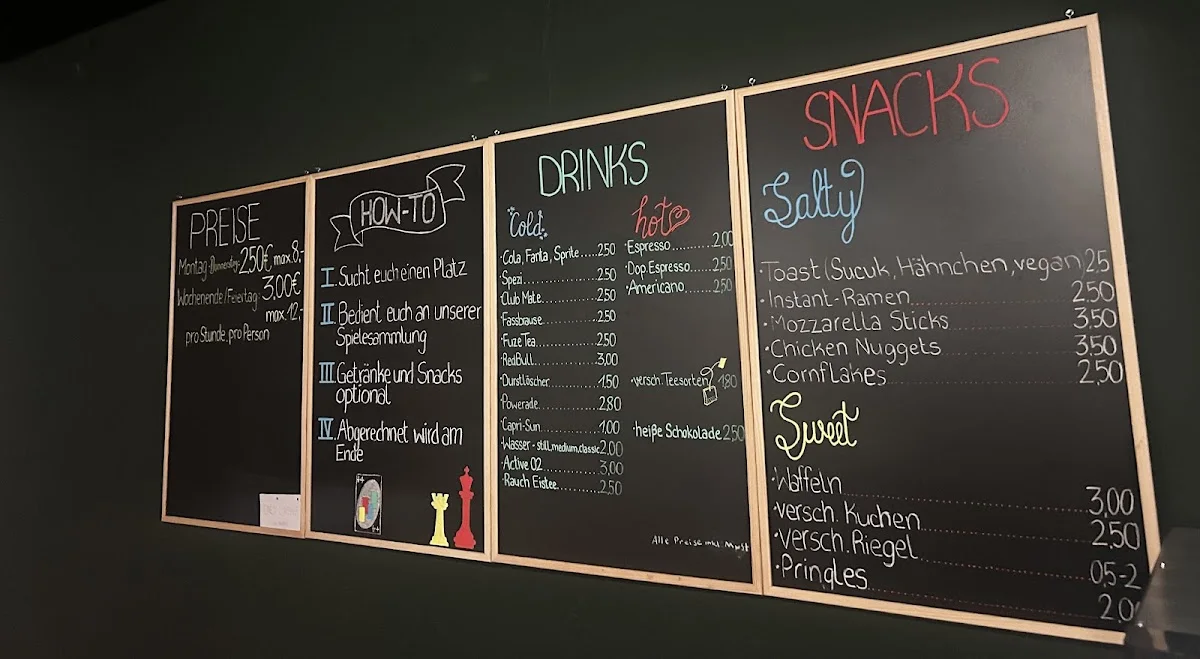 PREISE
Montag-Donnerstag: 2,50€ max. 8,-
Wochenende/Feiertag: 3,00€
max. 12,-
pro Stunde, pro Person
HOW-TO
I. Sucht euch einen Platz
II. Bedient euch an unserer
Spielesammlung
III. Getränke und Snacks
optional
IV. Abgerechnet wird am
Ende
DRINKS
Cold
·Cola, Fanta, Sprite.....2,50
·Spezi..........2,50
·Club Mate..........2,50
·Fassbrause..........2,50
·Fuze Tea..........2,50
·RedBull..........3,00
·Durstlöscher..........1,50
·Powerade..........2,80
·Capri-Sun..........1,00
·Wasser - still,medium,classic 2,00
·Active O2..........3,00
·Rauch Eistee..........2,50
hot
·Espresso..........2,00
·Dop. Espresso.....2,50
·Americano..........2,50
·versch. Teesorten 1,80
·heiße Schokolade 2,50
Alle Preise inkl. MwSt
SNACKS
Salty
·Toast (Sucuk, Hähnchen, vegan) 2,5
·Instant-Ramen..........2,50
·Mozzarella Sticks..........3,50
·Chicken Nuggets..........3,50
·Cornflakes..........2,50
Sweet
·Waffeln..........3,00
·versch. Kuchen..........2,50
·versch. Riegel..........0,5-2
·Pringles..........2,0